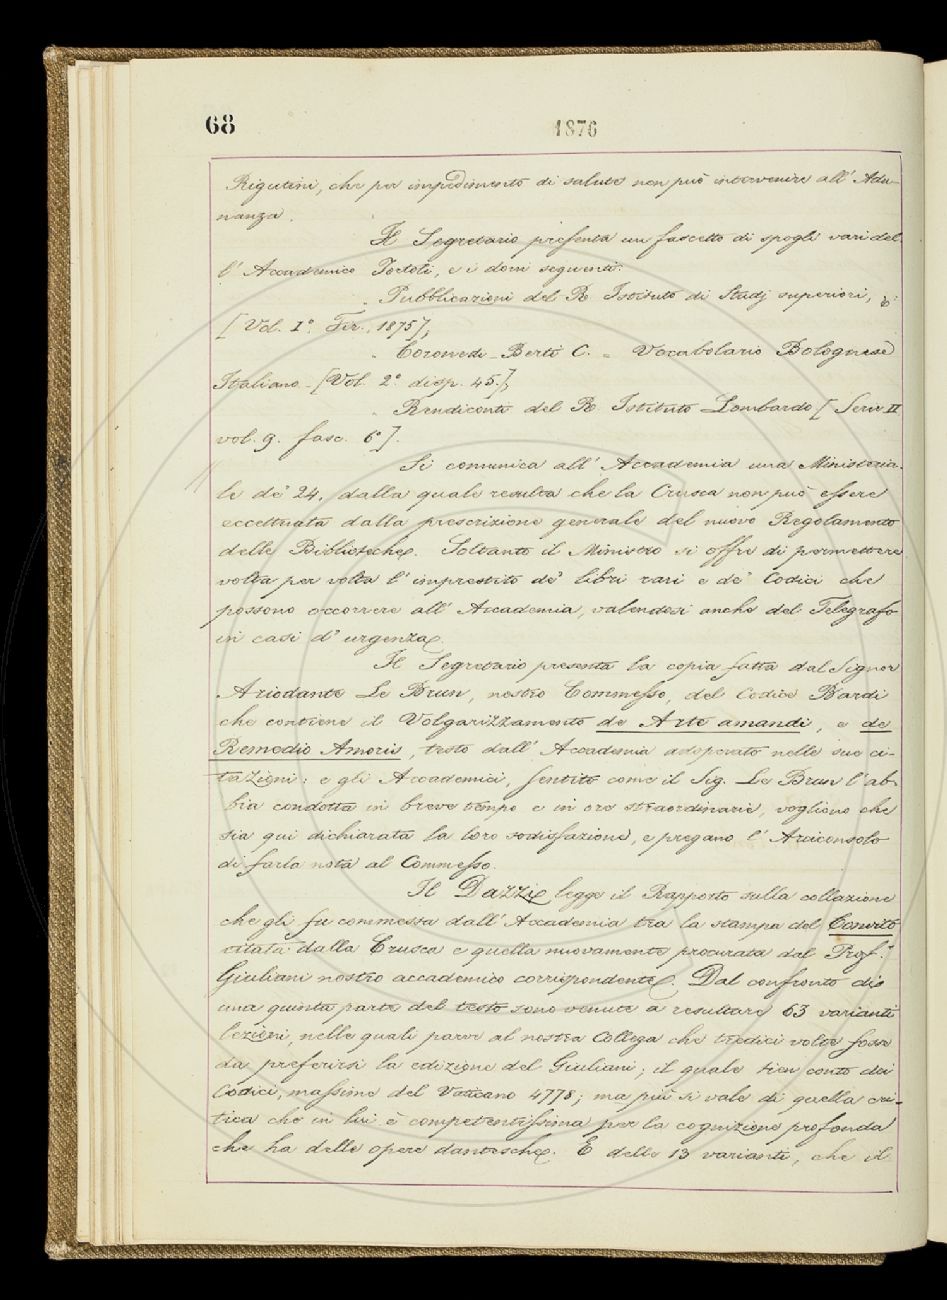 68
1876
Rigutini, che per impedimento di salute non può intervenire all' Adu-
nanza.
Il Segretario presenta un fascetto di spogli vari del-
l' Accademico Tortoli, e i doni seguenti.
Pubblicazioni del R. Istituto di Studj superiori, &
[Vol. I°. Fir. 1875],
Coronedi-Berti C. - Vocabolario Bolognese
Italiano - [Vol. 2° disp. 45.],
Rendiconti del R. Istituto Lombardo [Serie II
vol. 9. fasc. 6°].
Si comunica all' Accademia una Ministeria-
le de' 24, dalla quale resulta che la Crusca non può essere
eccettuata dalla prescrizione generale del nuovo Regolamento
delle Biblioteche. Soltanto il Ministro si offre di permettere
volta per volta l' imprestito de' libri rari e de' Codici che
possono occorrere all' Accademia, valendosi anche del Telegrafo
in casi d' urgenza.
Il Segretario presenta la copia fatta dal Signor
Ariodante Le Brun, nostro Commesso, del Codice Bardi
che contiene il Volgarizzamento de Arte amandi, e de
Remedio Amoris, testo dall' Accademia adoperato nelle sue ci-
tazioni: e gli Accademici, sentito come il Sig. Le Brun l' ab-
bia condotta in breve tempo e in ore straordinarie, vogliono che
sia qui dichiarata la loro sodisfazione, e pregano l' Arciconsolo
di farla nota al Commesso.
Il Dazzi legge il Rapporto sulla collazione
che gli fu commessa dall' Accademia tra la stampa del Convito
citata dalla Crusca e quella nuovamente procurata dal Prof.r
Giuliani nostro accademico corrispondente. Dal confronto di
una quinta parte del testo sono venute a resultare 63 varianti
lezioni, nelle quali parve al nostro Collega che tredici volte fosse
da preferirsi la edizione del Giuliani; il quale tien conto dei
Codici, massime del Vaticano 4778; ma più si vale di quella cri-
tica che in lui è competentissima per la cognizione profonda
che ha delle opere dantesche. E delle 13 varianti, che il